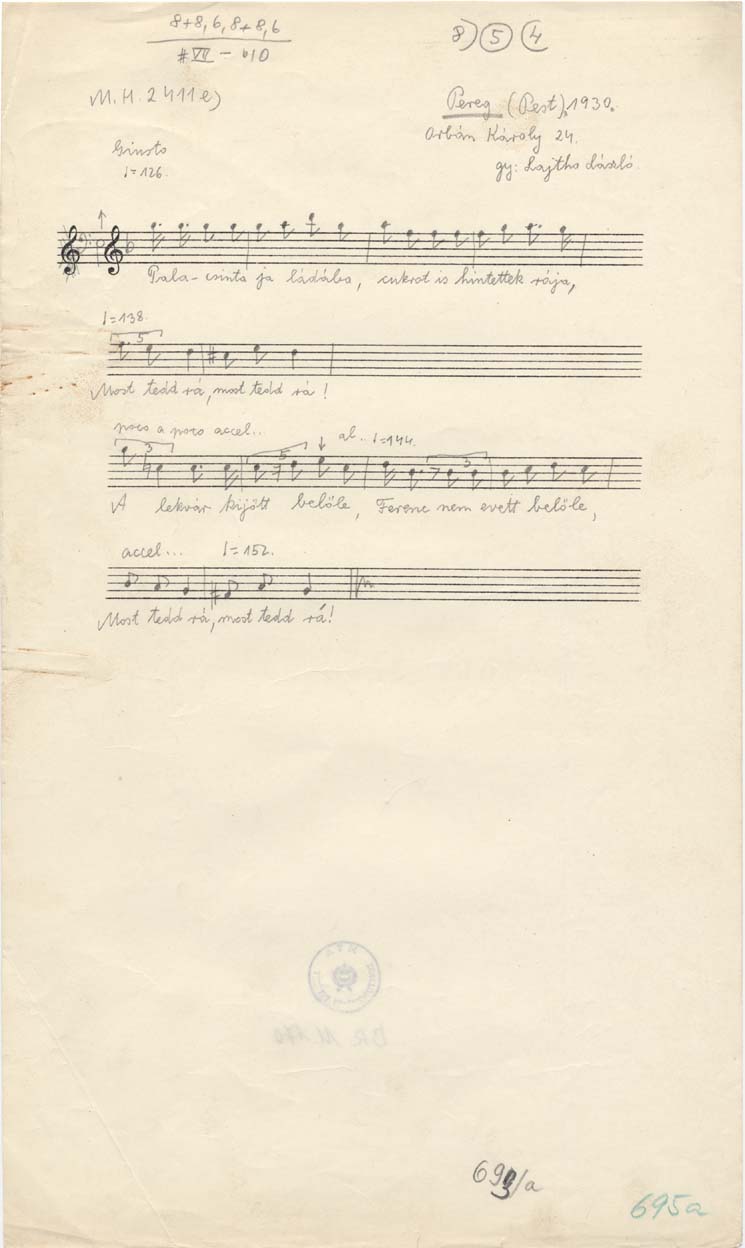 8+8, 6, 8+8, 6
#VII – b10
8) 5 4
M.H. 2411e)
Pereg (Pest), 1930.
Orbán Károly 24.
gy: Lajtha László.
Giusto
♩=126.
Pala-csinta ja ládába, cukrot is hintettek rája,
♩=138.
5
Most tedd rá, most tedd rá!
poco a poco accel... al.. ♩=144.
3 5 3
A lekvár kijött belőle, Ferenc nem evett belőle,
accel... ♩=152.
Most tedd rá, most tedd rá!
693/a
695a